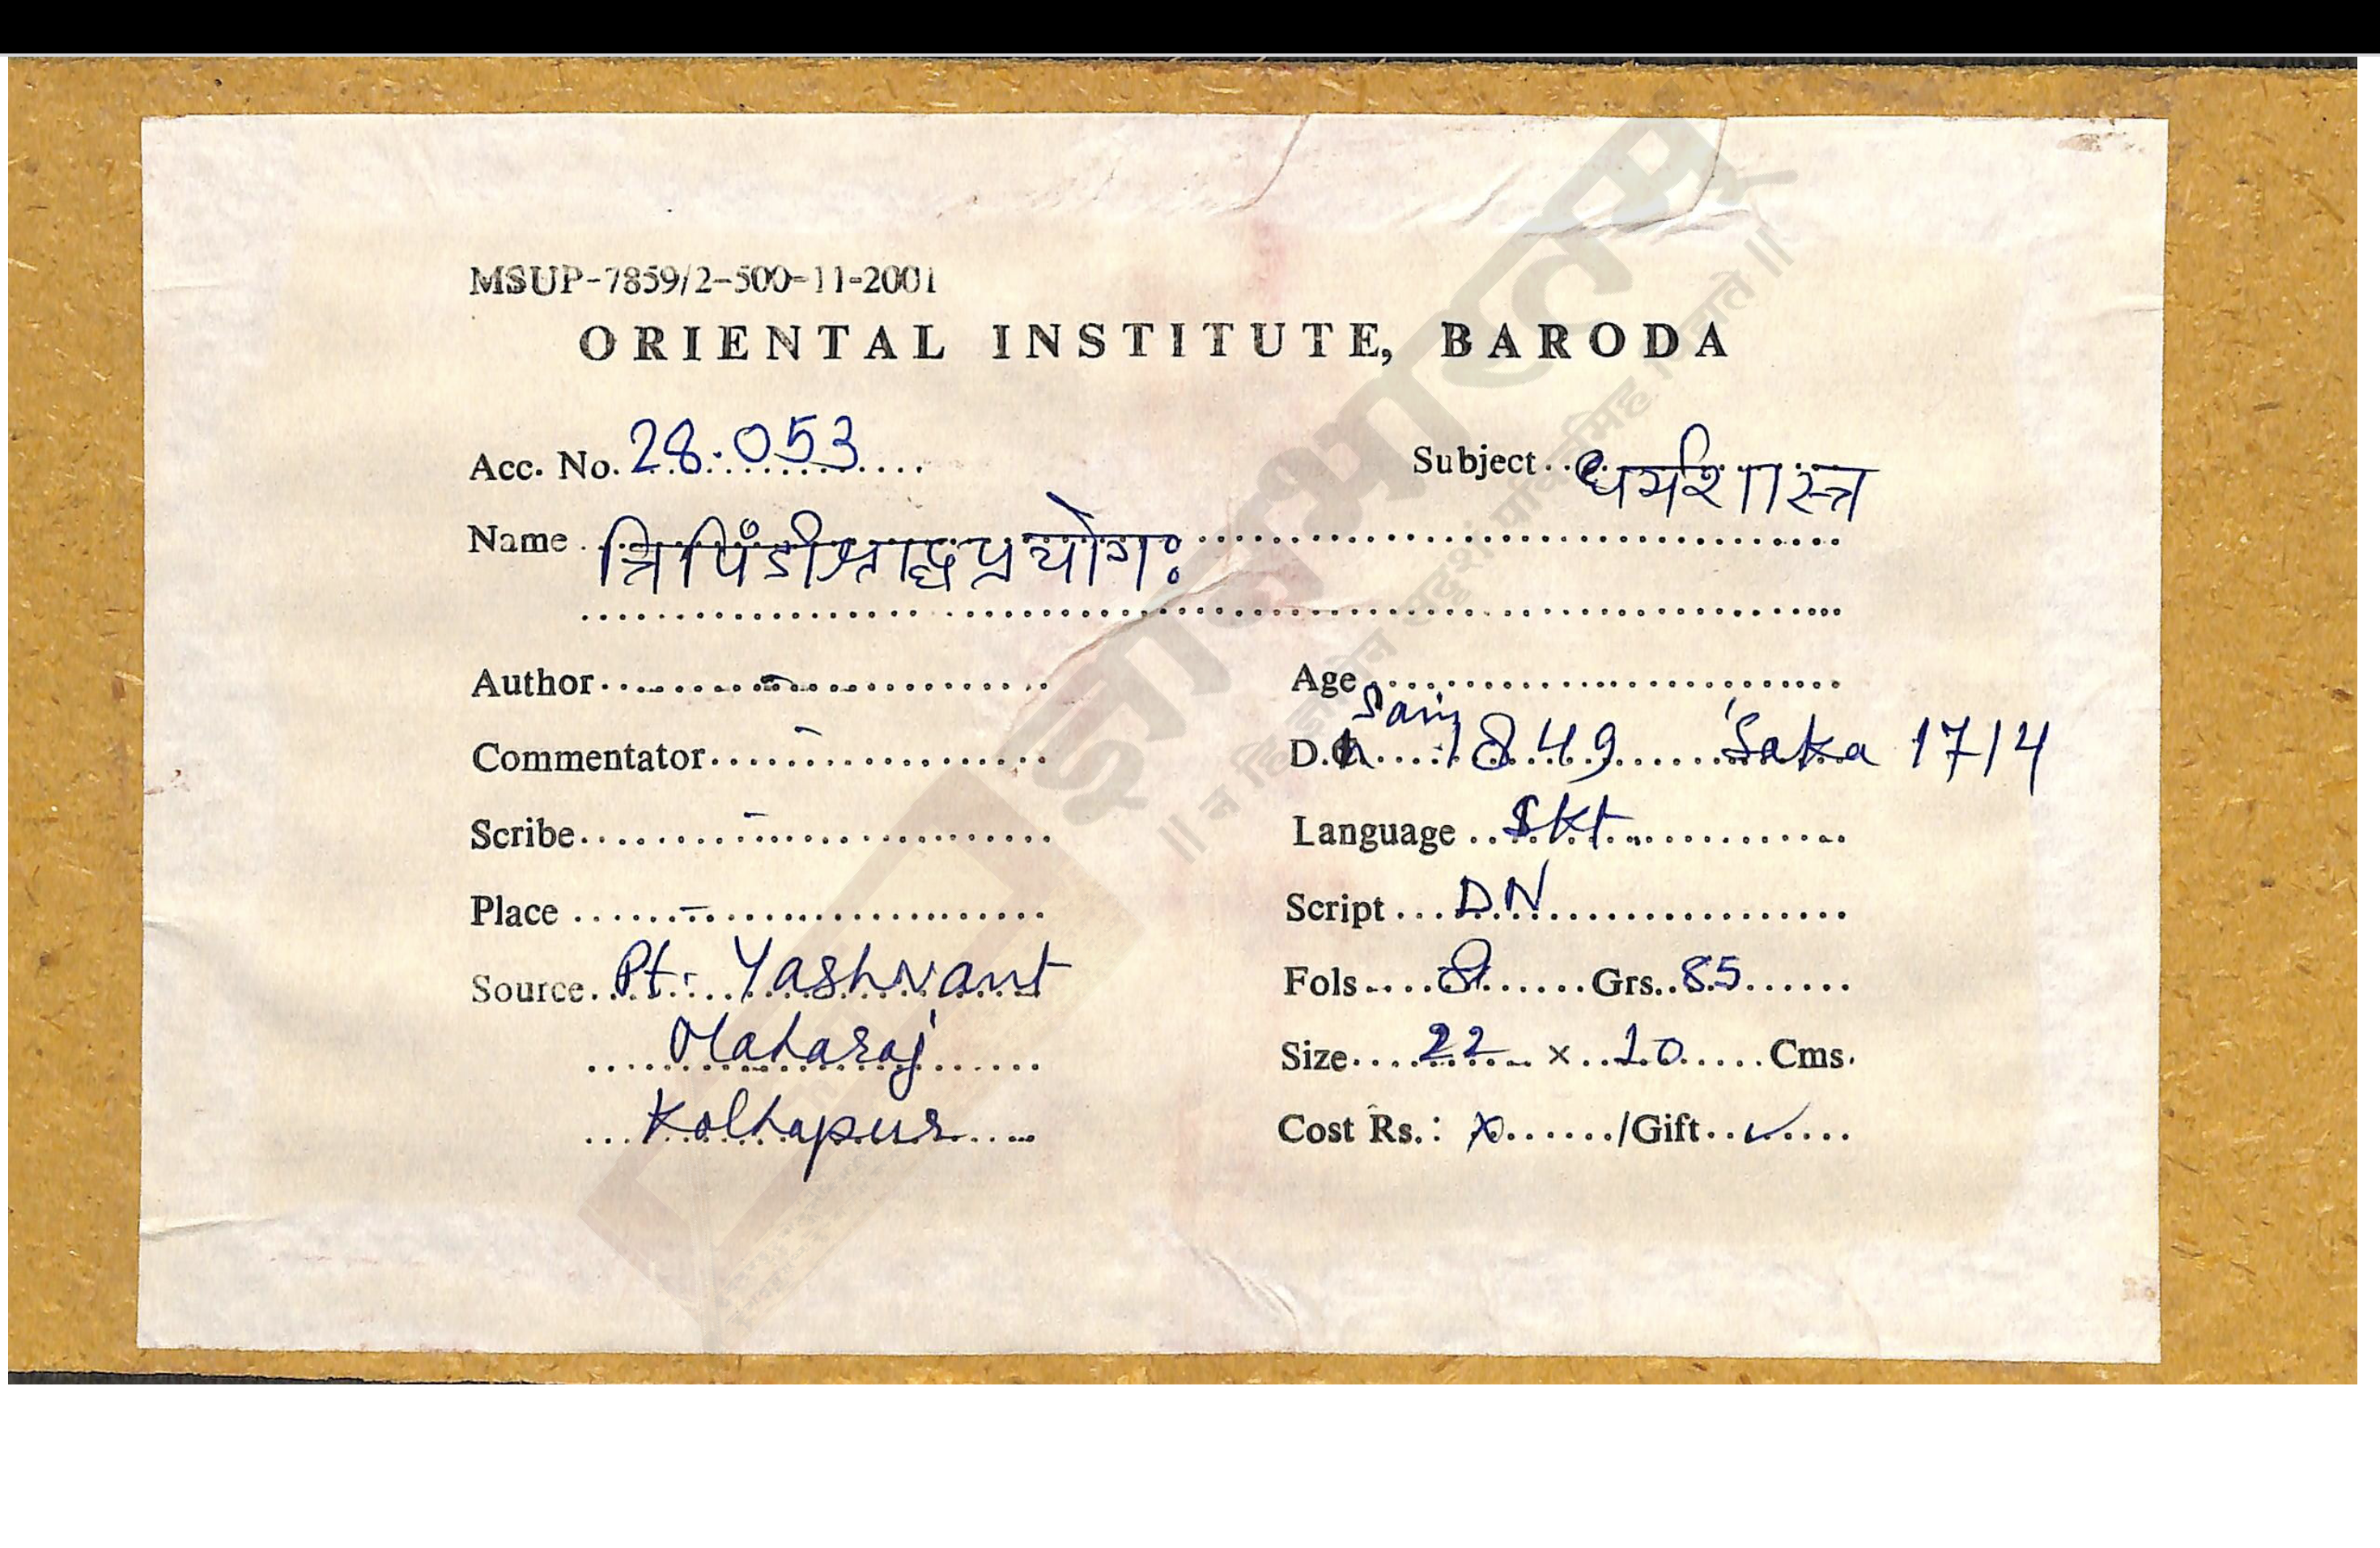 MSUP-7859/2-500-11-2001
ORIENTAL INSTITUTE, BARODA
Acc. No. 28.053 Subject धर्मशास्त्र
Name त्रिपिंडीश्राद्धप्रयोगः
Author - Age
Commentator - D. Sam 1849 Śaka 1714
Scribe - Language Skt.
Place - Script DN
Source Pt. Yashvant Fols 8 Grs. 85
Maharaj Size 22 × 10 Cms.
Kolhapur Cost Rs.: x /Gift ✓
ज्ञानभारतम्
॥ न हि ज्ञानेन सदृशं पवित्रमिह विद्यते ॥